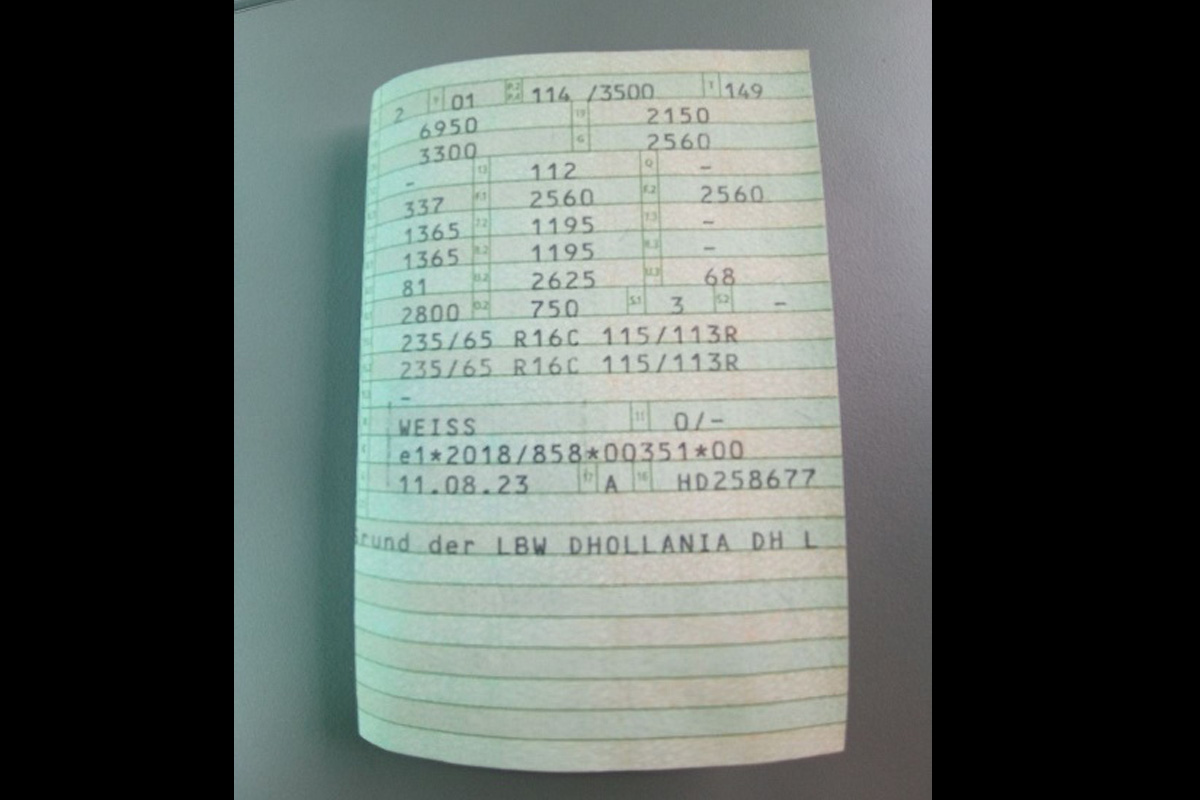 2 9 01 P.2 P.4 114 /3500 T 149
6950 19 2150
3300 G 2560
- 13 112 Q -
337 F.1 2560 F.2 2560
1365 7.2 1195 7.3 -
1365 8.2 1195 8.3 -
81 U.2 2625 U.3 68
2800 O.2 750 S.1 3 S.2 -
235/65 R16C 115/113R
235/65 R16C 115/113R
-
WEISS 11 0/-
e1*2018/858*00351*00
11.08.23 17 A 16 HD258677
rund der LBW DHOLLANIA DH L